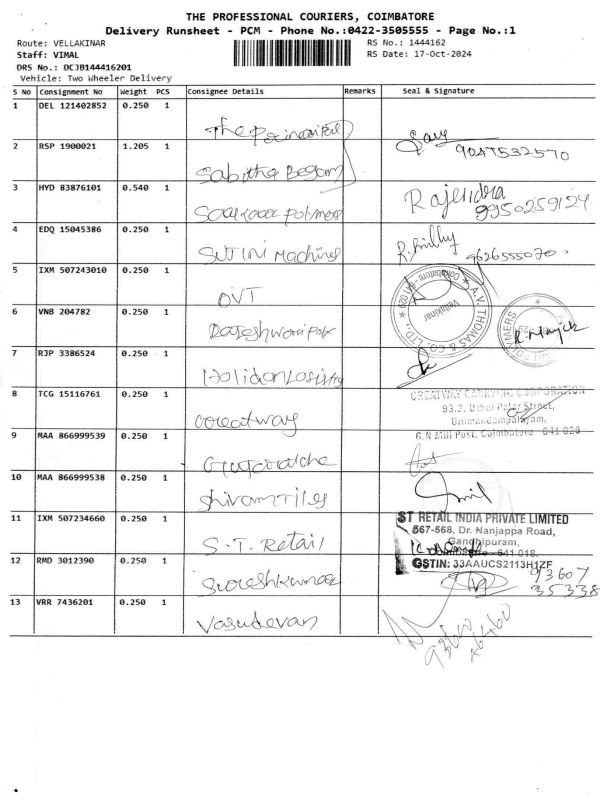 THE PROFESSIONAL COURIERS, COIMBATORE
Delivery Runsheet - PCM - Phone No.:0422-3505555 - Page No.:1
Route: VELLAKINAR RS No.: 1444162
Staff: VIMAL RS Date: 17-Oct-2024
DRS No.: DCJB144416201
Vehicle: Two Wheeler Delivery
S No Consignment No Weight PCS Consignee Details Remarks Seal & Signature
1 DEL 121402852 0.250 1 The
2 RSP 1900021 1.205 1 Sabitha Begam 9047532570
3 HYD 83876101 0.540 1 Polymers Rajendra 9950259124
4 EDQ 15045386 0.250 1 Machines 9626555070
5 IXM 507243010 0.250 1 DVT
A.V. THOMAS & CO. LTD., Coimbatore - 641 029
Vellakinar
6 VNB 204782 0.250 1 Rajeshwari
POLYMERS
7 RJP 3386524 0.250 1
8 TCG 15116761 0.250 1 Greatway
GREATWAY CARRYING CORPORATION
93.2, Street,
G.N Mill Post, Coimbatore - 641 029
9 MAA 866999539 0.250 1
10 MAA 866999538 0.250 1 Shivam Tiles
11 IXM 507234660 0.250 1 S.T. Retail
ST RETAIL INDIA PRIVATE LIMITED
567-568, Dr. Nanjappa Road,
Gandhipuram,
641 018.
GSTIN: 33AAUCS2113H1ZF
12 RMD 3012390 0.250 1 Sureshkumar 93607 35338
13 VRR 7436201 0.250 1 Vasudevan